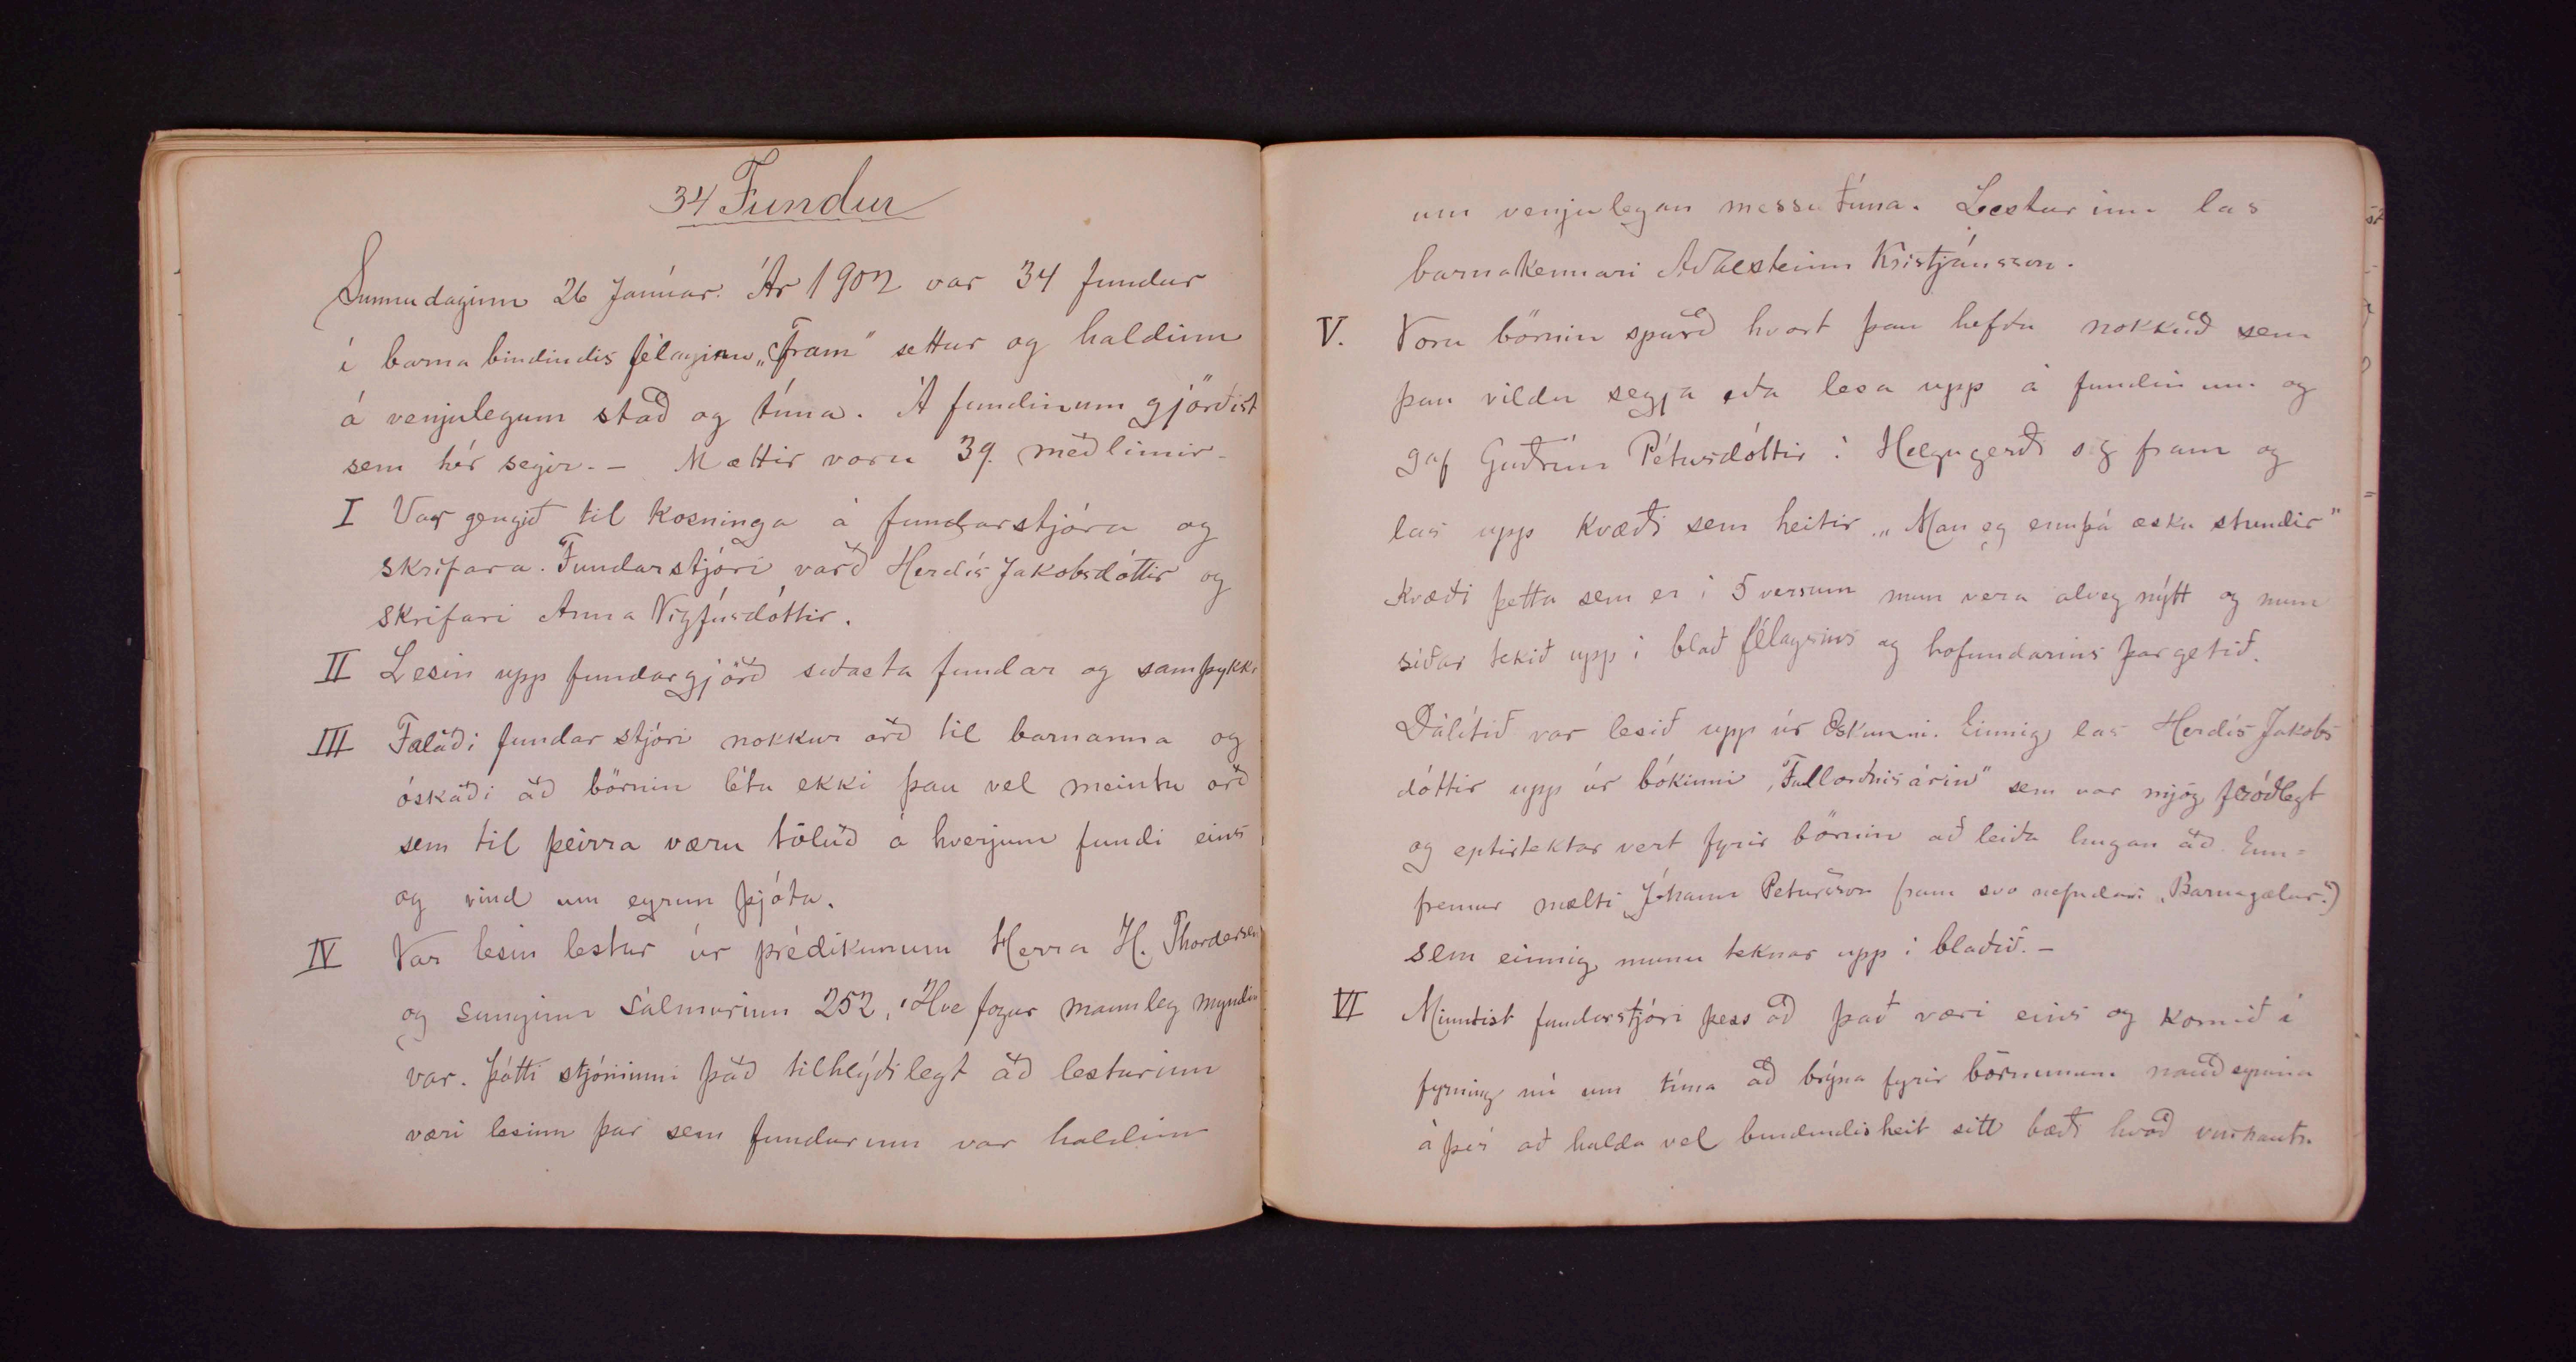 34 Fundur
Sunnudaginn 26 Janúar. Ár 1902 var 34 fundur
í barna bindindis félaginu „Fram" settur og haldinn
á venjulegum stað og tíma. Á fundinum gjörðist
sem hér segir. – Mættir voru 39. meðlimir –
I Var gengið til kosninga á fundarstjóra og
skrifara. Fundarstjóri varð Herdís Jakobsdóttir og
skrifari Anna Vigfúsdóttir.
II Lesin upp fundargjörð siðasta fundar og samþykkt
III Talaði fundar stjóri nokkur orð til barnanna og
óskaði að börnin létu ekki þau vel meintu orð
sem til þeirra væru töluð á hverjum fundi eins
og vind um eyrun þjóta.
IV Var lesin lestur úr prédikunum Herra H. Thordersen
og sunginn sálmurinn 252, „Hve fogur mannleg myndin
var. Þótti stjórninni það tilhlýðilegt að lesturinn
væri lesinn þar sem fundurinn var haldinn
um venjulegan messutíma. Lesturinn las
barnakennari Aðalsteinn Kristjánsson.
V. Voru börnin spurð hvort þau hefðu nokkuð sem
þau vildu segja eða lesa upp á fundinum og
gaf Guðrún Pétursdóttir í Helgugerði sig fram og
las upp kvæði sem heitir „Man eg ennþá æsku stundir"
kvæði þetta sem er í 5 versum mun vera alveg nýtt og mun
síðar tekið upp í blað félagsins og hofundarins þar getið.
Dálítið var lesið upp úr Öskunni. Einnig las Herdís Jakobs
dóttir upp úr bókinni „Fullorðnisárin" sem var mjög fróðlegt
og eptirtektar vert fyrir börnin að leiða hugan að. Enn=
fremur mælti Jóhann Petursson fram svo nefndari „Barnagælur")
sem einnig munu teknar upp í blaðið. –
VI Minntist fundarstjóri þess að það væri eins og komið í
fyrning nú um tíma að brýna fyrir börnunum nauðsynina
á því að halda vel bindindisheit sitt bæði hvað